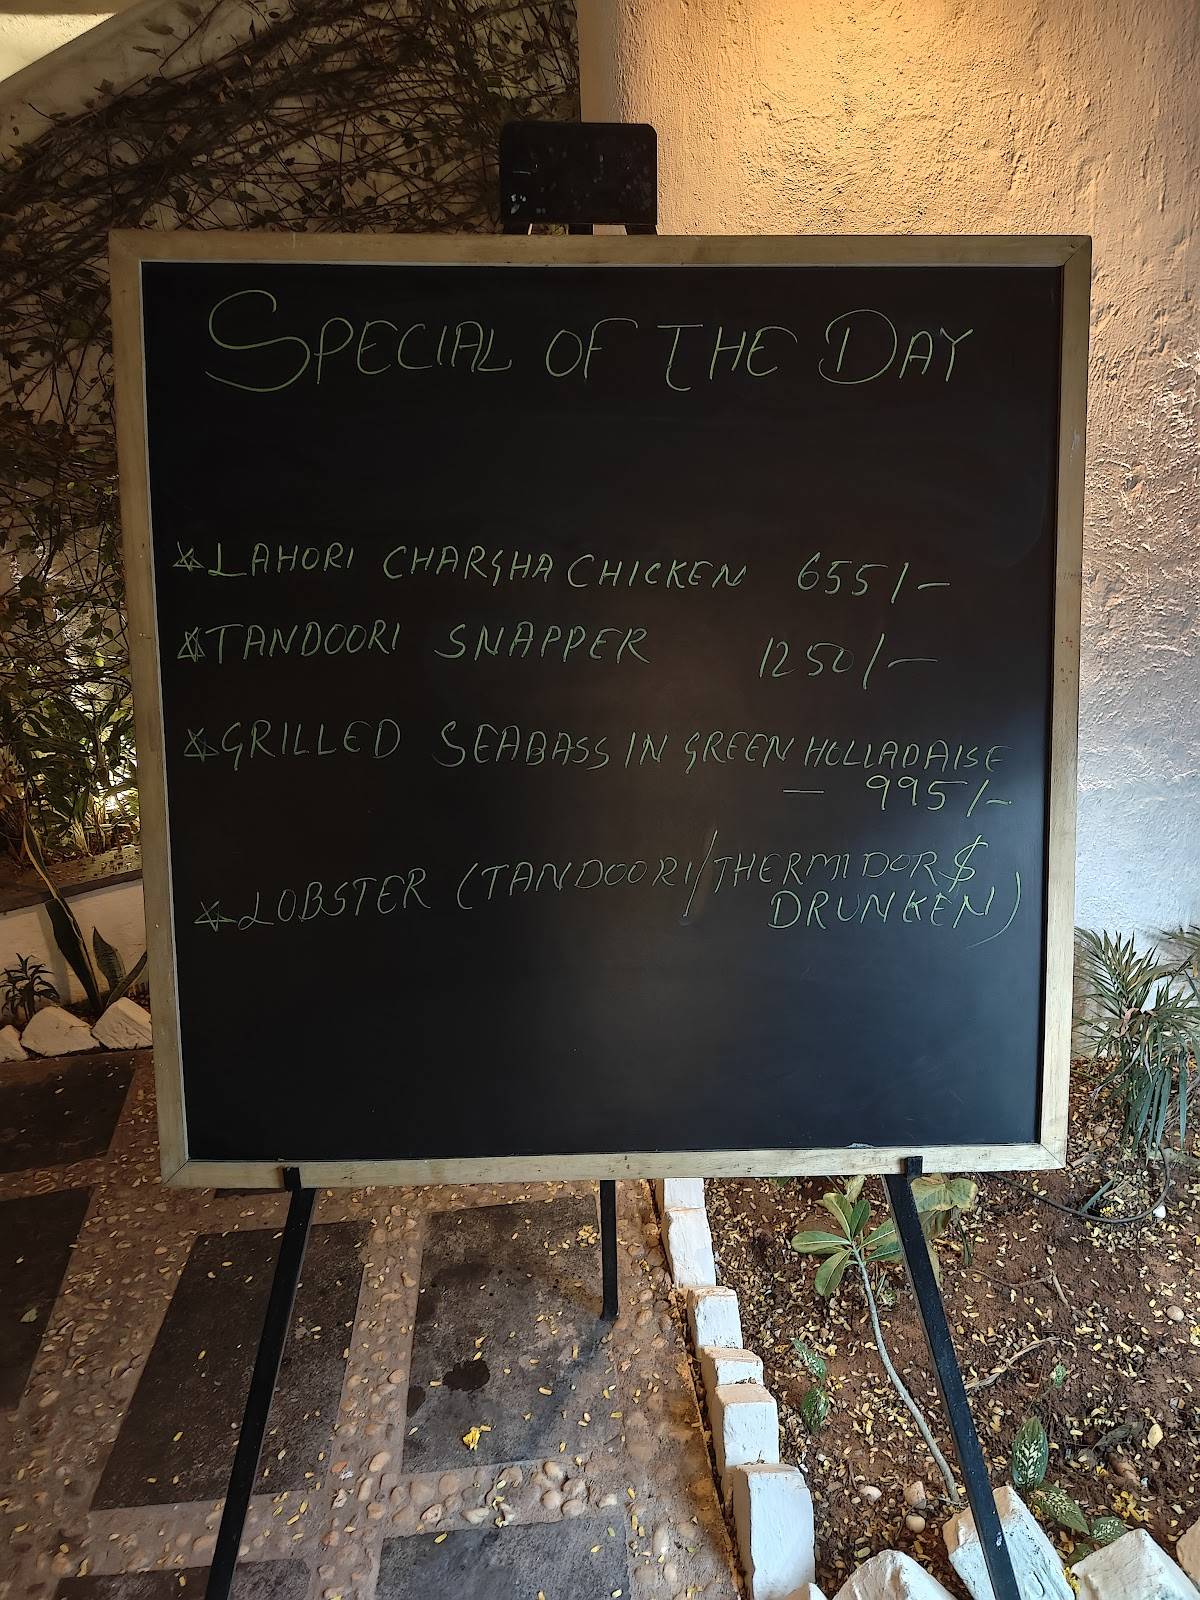 SPECIAL OF THE DAY
☆ LAHORI CHARSHA CHICKEN 655/-
☆ TANDOORI SNAPPER 1250/-
☆ GRILLED SEABASS IN GREEN HOLLADAISE
— 995/-
☆ LOBSTER (TANDOORI/THERMIDOR $
DRUNKEN)